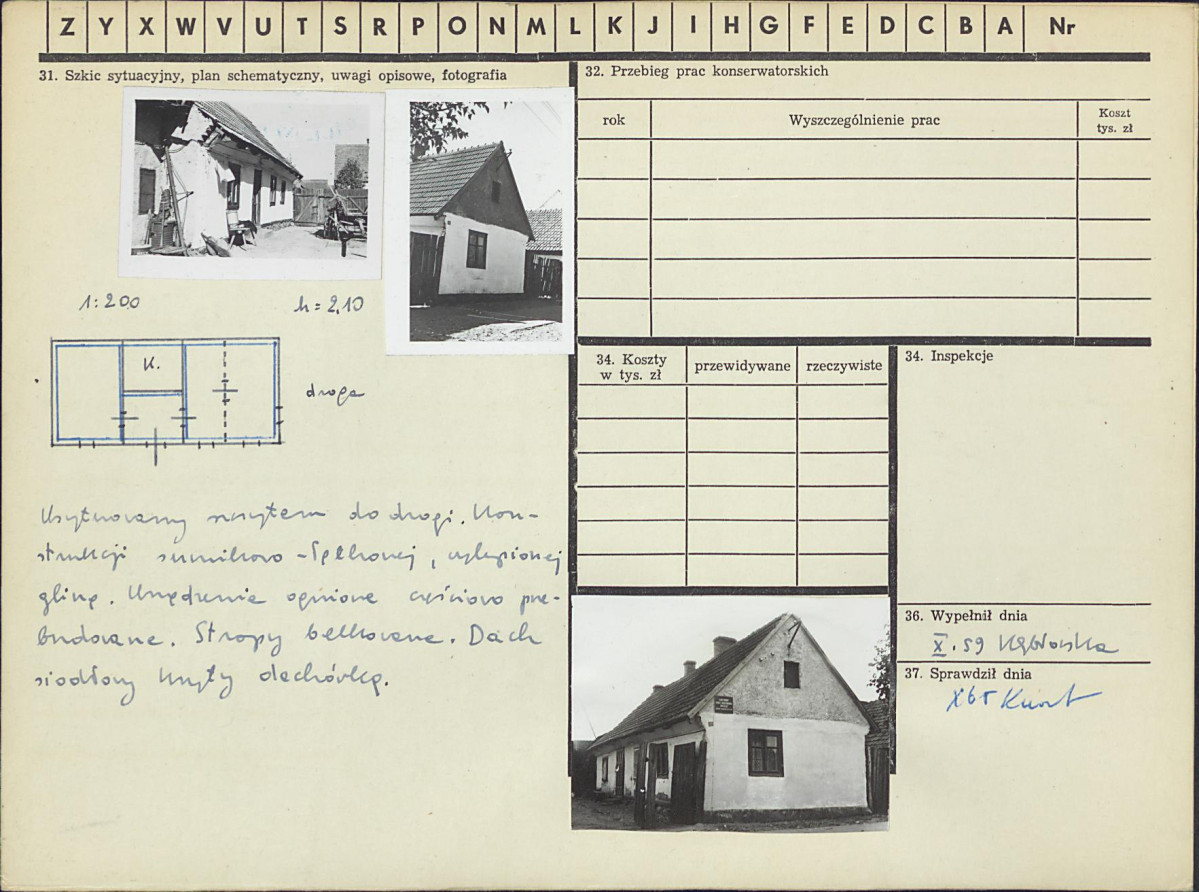 Z Y X W V U T S R P O N M L K J I H G F E D C B A Nr
31. Szkic sytuacyjny, plan schematyczny, uwagi opisowe, fotografia
1:200
h = 2,10
K.
droga
Usytuowany szczytem do drogi. Kon-
strukcji sumikowo-łątkowej, wylepionej
gliną. Wnętrze częściowo prze-
budowane. Stropy belkowane. Dach
siodłowy kryty dachówką.
32. Przebieg prac konserwatorskich
rok
Wyszczególnienie prac
Koszt
tys. zł
34. Koszty
w tys. zł
przewidywane
rzeczywiste
34. Inspekcje
36. Wypełnił dnia
X. 59
37. Sprawdził dnia